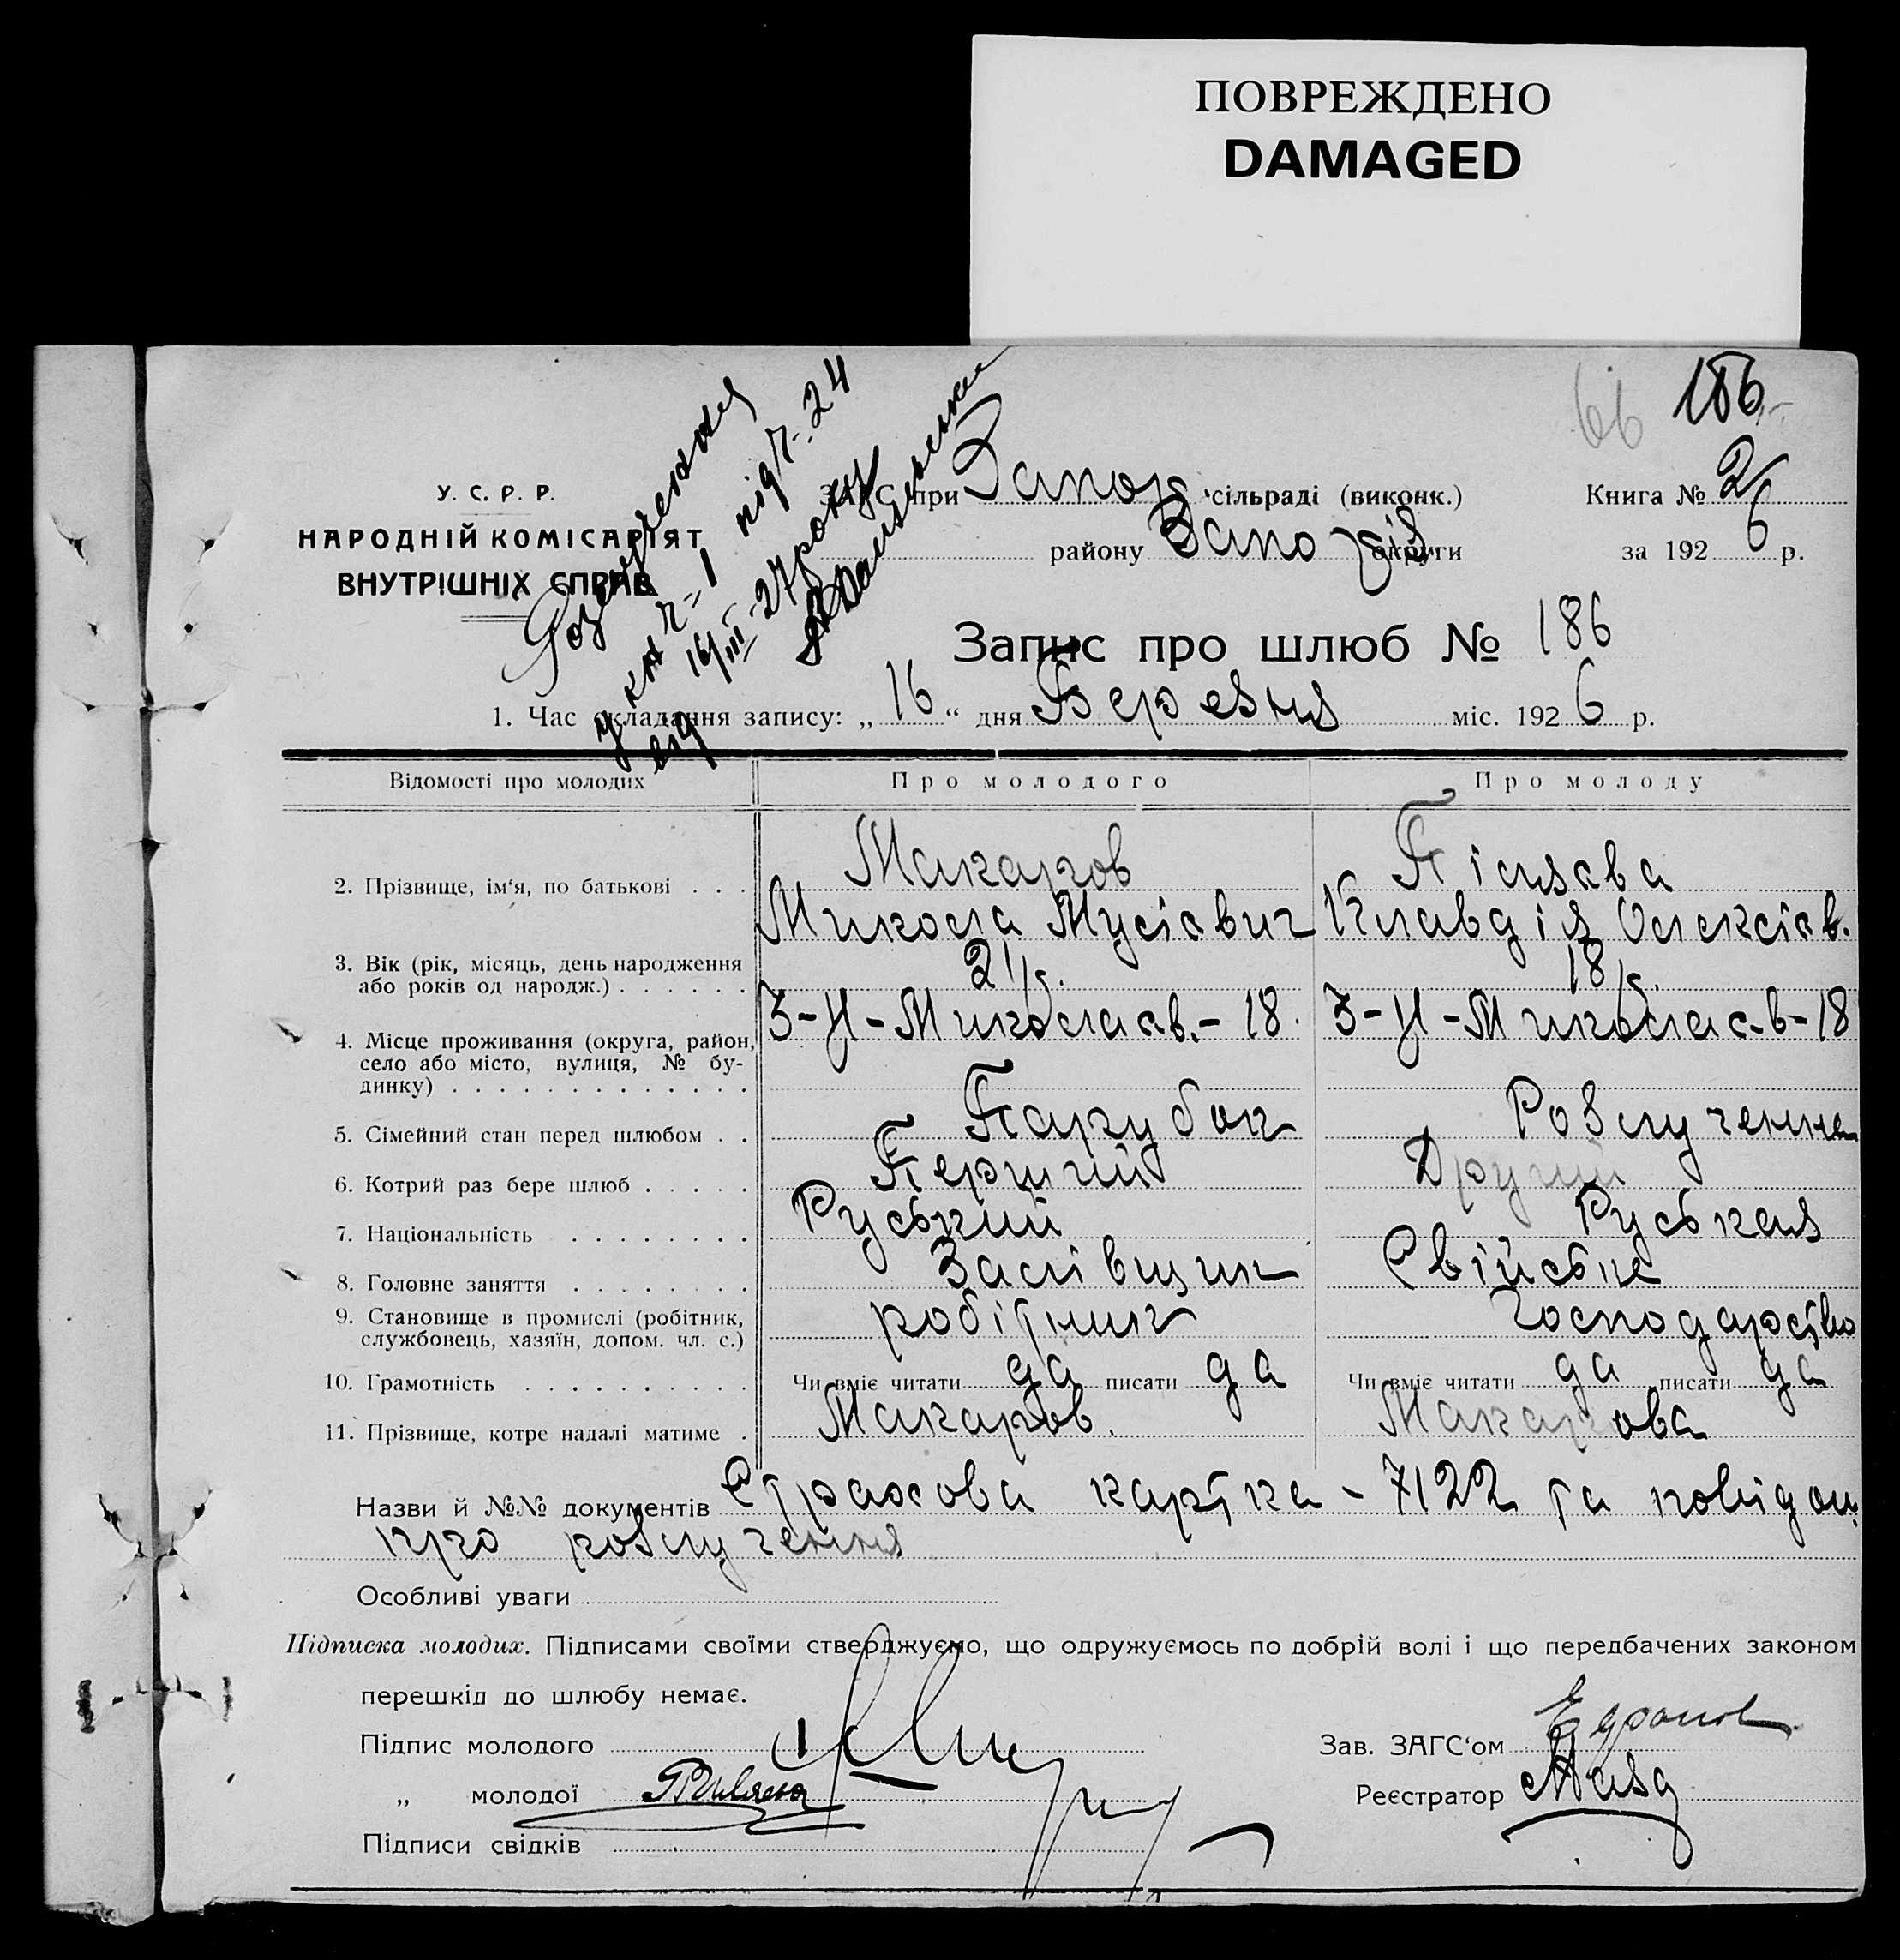 ПОВРЕЖДЕНО
DAMAGED
66 186
У. С. Р. Р.
НАРОДНІЙ КОМІСАРІЯТ
ВНУТРІШНІХ СПРАВ
Розлучення
у кн ч-1 під ч-24
від 16/III-27 року
ЗАГС при Запор. сільраді (виконк.)
району Запоріз округи
Книга № 2
за 1926 р.
Запис про шлюб № 186
1. Час складання запису: „16“ дня Березня міс. 1926 р.
Відомості про молодих
Про молодого
Про молоду
2. Прізвище, ім‘я, по батькові . . .
Макаров
Микола Мусієвич
Піляєва
Клавдія Олексієв.
3. Вік (рік, місяць, день народження
або років од народж.) . . . . . .
21 р.
18 р.
4. Місце проживання (округа, район,
село або місто, вулиця, № бу-
динку) . . . . . . . . . . . . .
З-Н-Миколаєв.-18.
З-Н-Миколаєв-18
5. Сімейний стан перед шлюбом . .
Парубок
Розлученна
6. Котрий раз бере шлюб . . . . .
Перший
Другий
7. Національність . . . . . . . .
Руський
Руськая
8. Головне заняття . . . . . . . .
Заслівщик
Свійське
9. Становище в промислі (робітник,
службовець, хазяїн, допом. чл. с.)
робітник
господарство
10. Грамотність . . . . . . . . . .
Чи вміє читати да писати да
Чи вміє читати да писати да
11. Прізвище, котре надалі матиме .
Макаров.
Макарова
Назви й №№ документів Страхова картка - 7122 та повідом.
про розлучення
Особливі уваги
Підписка молодих. Підписами своїми стверджуємо, що одружуємось по добрій волі і що передбачених законом
перешкід до шлюбу немає.
Підпис молодого
„ молодої
Підписи свідків
Зав. ЗАГС‘ом
Реєстратор